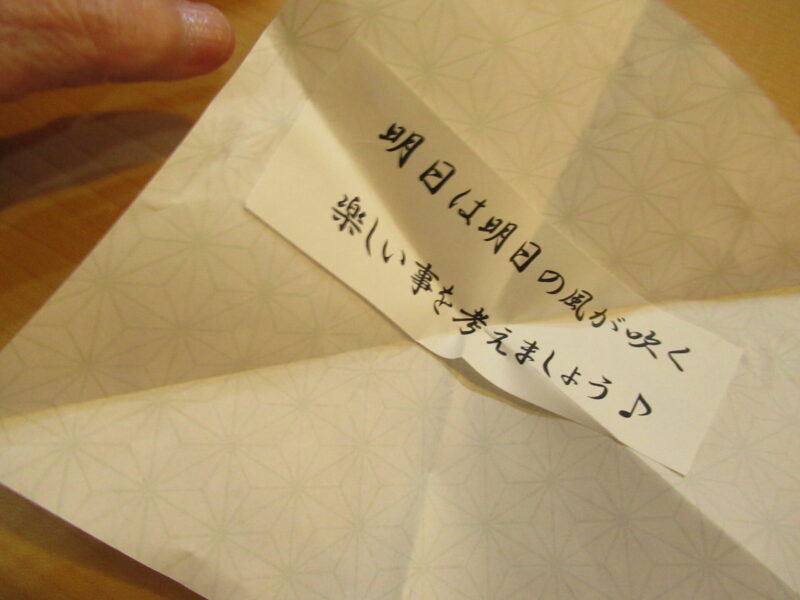 明日は明日の風が吹く
楽しい事を考えましょう♪